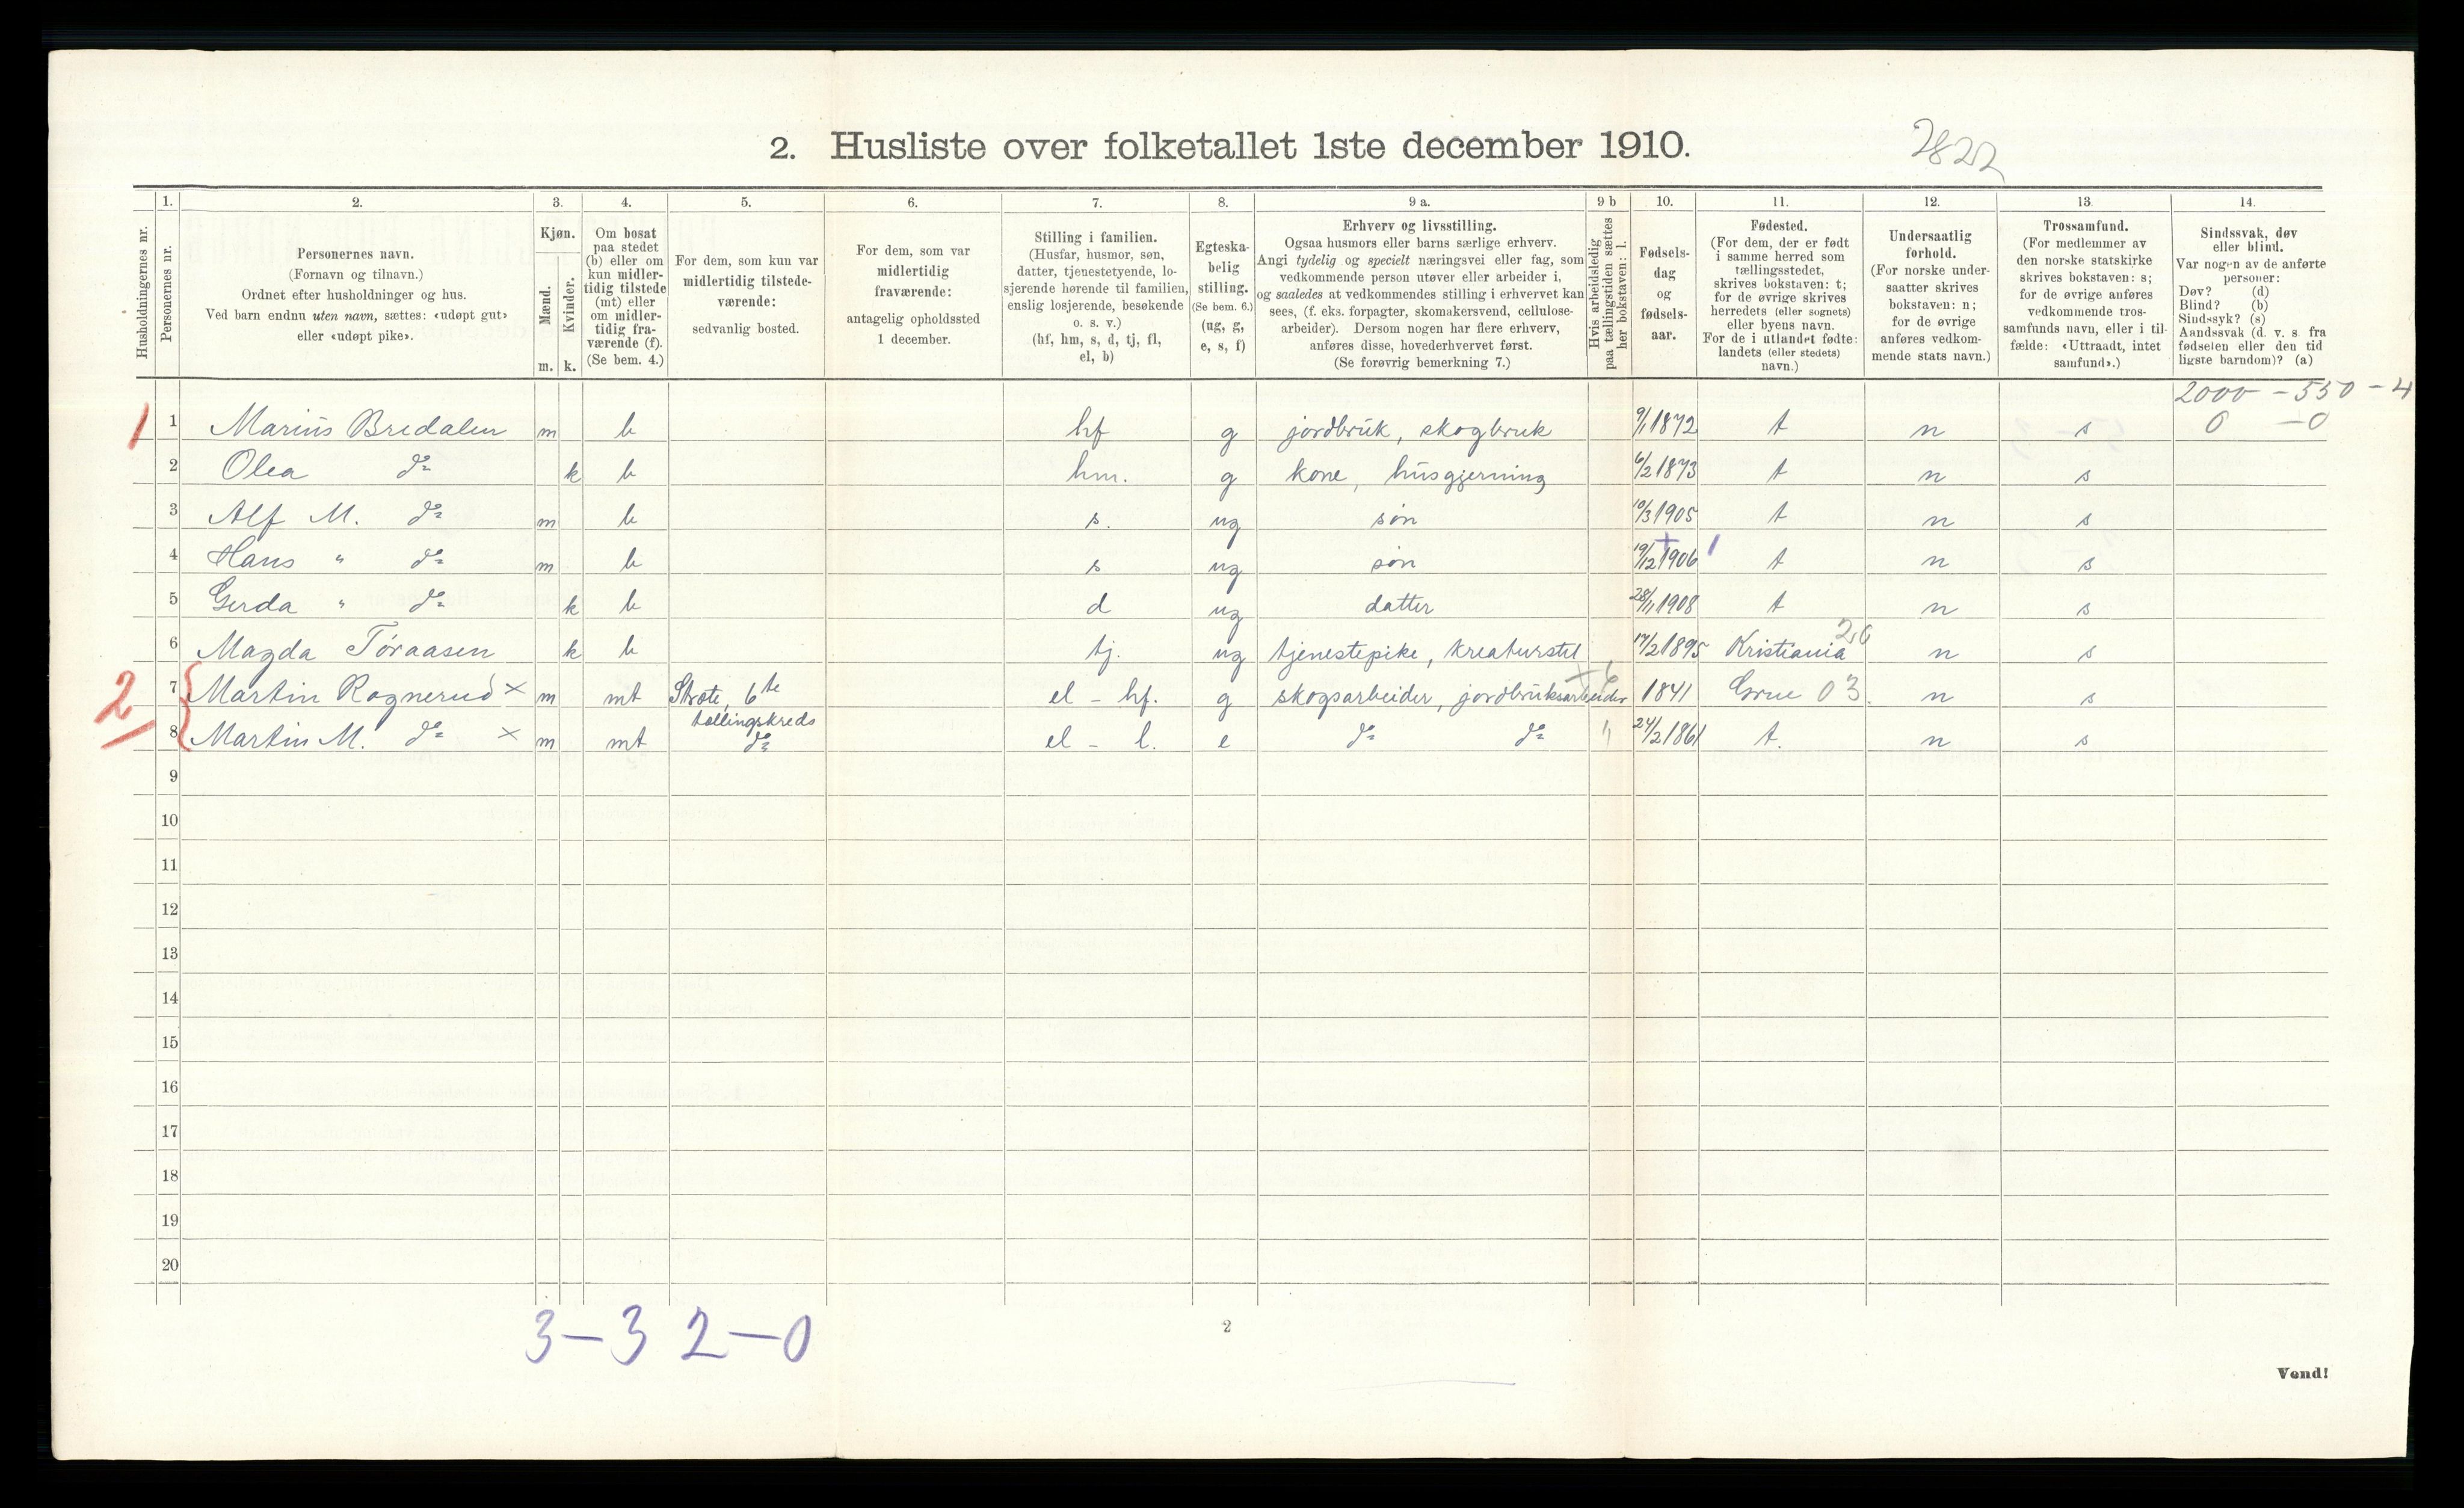 2. Husliste over folketallet 1ste december 1910.
2822
1. 2. 3. 4. 5. 6. 7. 8. 9 a. 9 b 10. 11. 12. 13. 14.
Husholdningernes nr.
Personernes nr.
Personernes navn.
(Fornavn og tilnavn.)
Ordnet efter husholdninger og hus.
Ved barn endnu uten navn, sættes: «udøpt gut»
eller «udøpt pike».
Kjøn.
Mænd.
Kvinder.
m. k.
Om bosat
paa stedet
(b) eller om
kun midler-
tidig tilstede
(mt) eller
om midler-
tidig fra-
værende (f).
(Se bem. 4.)
For dem, som kun var
midlertidig tilstede-
værende:
sedvanlig bosted.
For dem, som var
midlertidig
fraværende:
antagelig opholdssted
1 december.
Stilling i familien.
(Husfar, husmor, søn,
datter, tjenestetyende, lo-
sjerende hørende til familien,
enslig losjerende, besøkende
o. s. v.)
(hf, hm, s, d, tj, fl,
el, b)
Egteska-
belig
stilling.
(Se bem. 6.)
(ug, g,
e, s, f)
Erhverv og livsstilling.
Ogsaa husmors eller barns særlige erhverv.
Angi tydelig og specielt næringsvei eller fag, som
vedkommende person utøver eller arbeider i,
og saaledes at vedkommendes stilling i erhvervet kan
sees, (f. eks. forpagter, skomakersvend, cellulose-
arbeider). Dersom nogen har flere erhverv,
anføres disse, hovederhvervet først.
(Se forøvrig bemerkning 7.)
Hvis arbeidsledig
paa tællingstiden sættes
her bokstaven: l.
Fødsels-
dag
og
fødsels-
aar.
Fødested.
(For dem, der er født
i samme herred som
tællingsstedet,
skrives bokstaven: t;
for de øvrige skrives
herredets (eller sognets)
eller byens navn.
For de i utlandet fødte:
landets (eller stedets)
navn.)
Undersaatlig
forhold.
(For norske under-
saatter skrives
bokstaven: n;
for de øvrige
anføres vedkom-
mende stats navn.)
Trossamfund.
(For medlemmer av
den norske statskirke
skrives bokstaven: s;
for de øvrige anføres
vedkommende tros-
samfunds navn, eller i til-
fælde: «Uttraadt, intet
samfund».)
Sindssvak, døv
eller blind.
Var nogen av de anførte
personer:
Døv? (d)
Blind? (b)
Sindssyk? (s)
Aandssvak (d. v. s. fra
fødselen eller den tid-
ligste barndom)? (a)
2000 - 550 - 4
1 1 Marius Bredalen m b hf g jordbruk, skogbruk 9/1 1872 t n s 0 - 0
2 Olea do k b hm. g kone, husgjerning 6/2 1873 t n s
3 Alf M. do m b s. ug søn 10/3 1905 t n s
4 Hans " do m b s ug søn 19/12 1906 t n s
5 Gerda " do k b d ug datter 28/11 1908 t n s
6 Magda Tøraasen k b tj. ug tjenestepike, kreaturstel 17/2 1895 Kristiania n s
2 7 Martin Rognerud × m mt Strøte, 6te tællingskreds el - hf. g skogsarbeider, jordbruksarbeider 1841 Grue 03 n s
8 Martin M. do × m mt do el - l. e do do " 24/2 1861 t. n s
9
10
11
12
13
14
15
16
17
18
19
20
3 - 3 2 - 0
2
Vend!